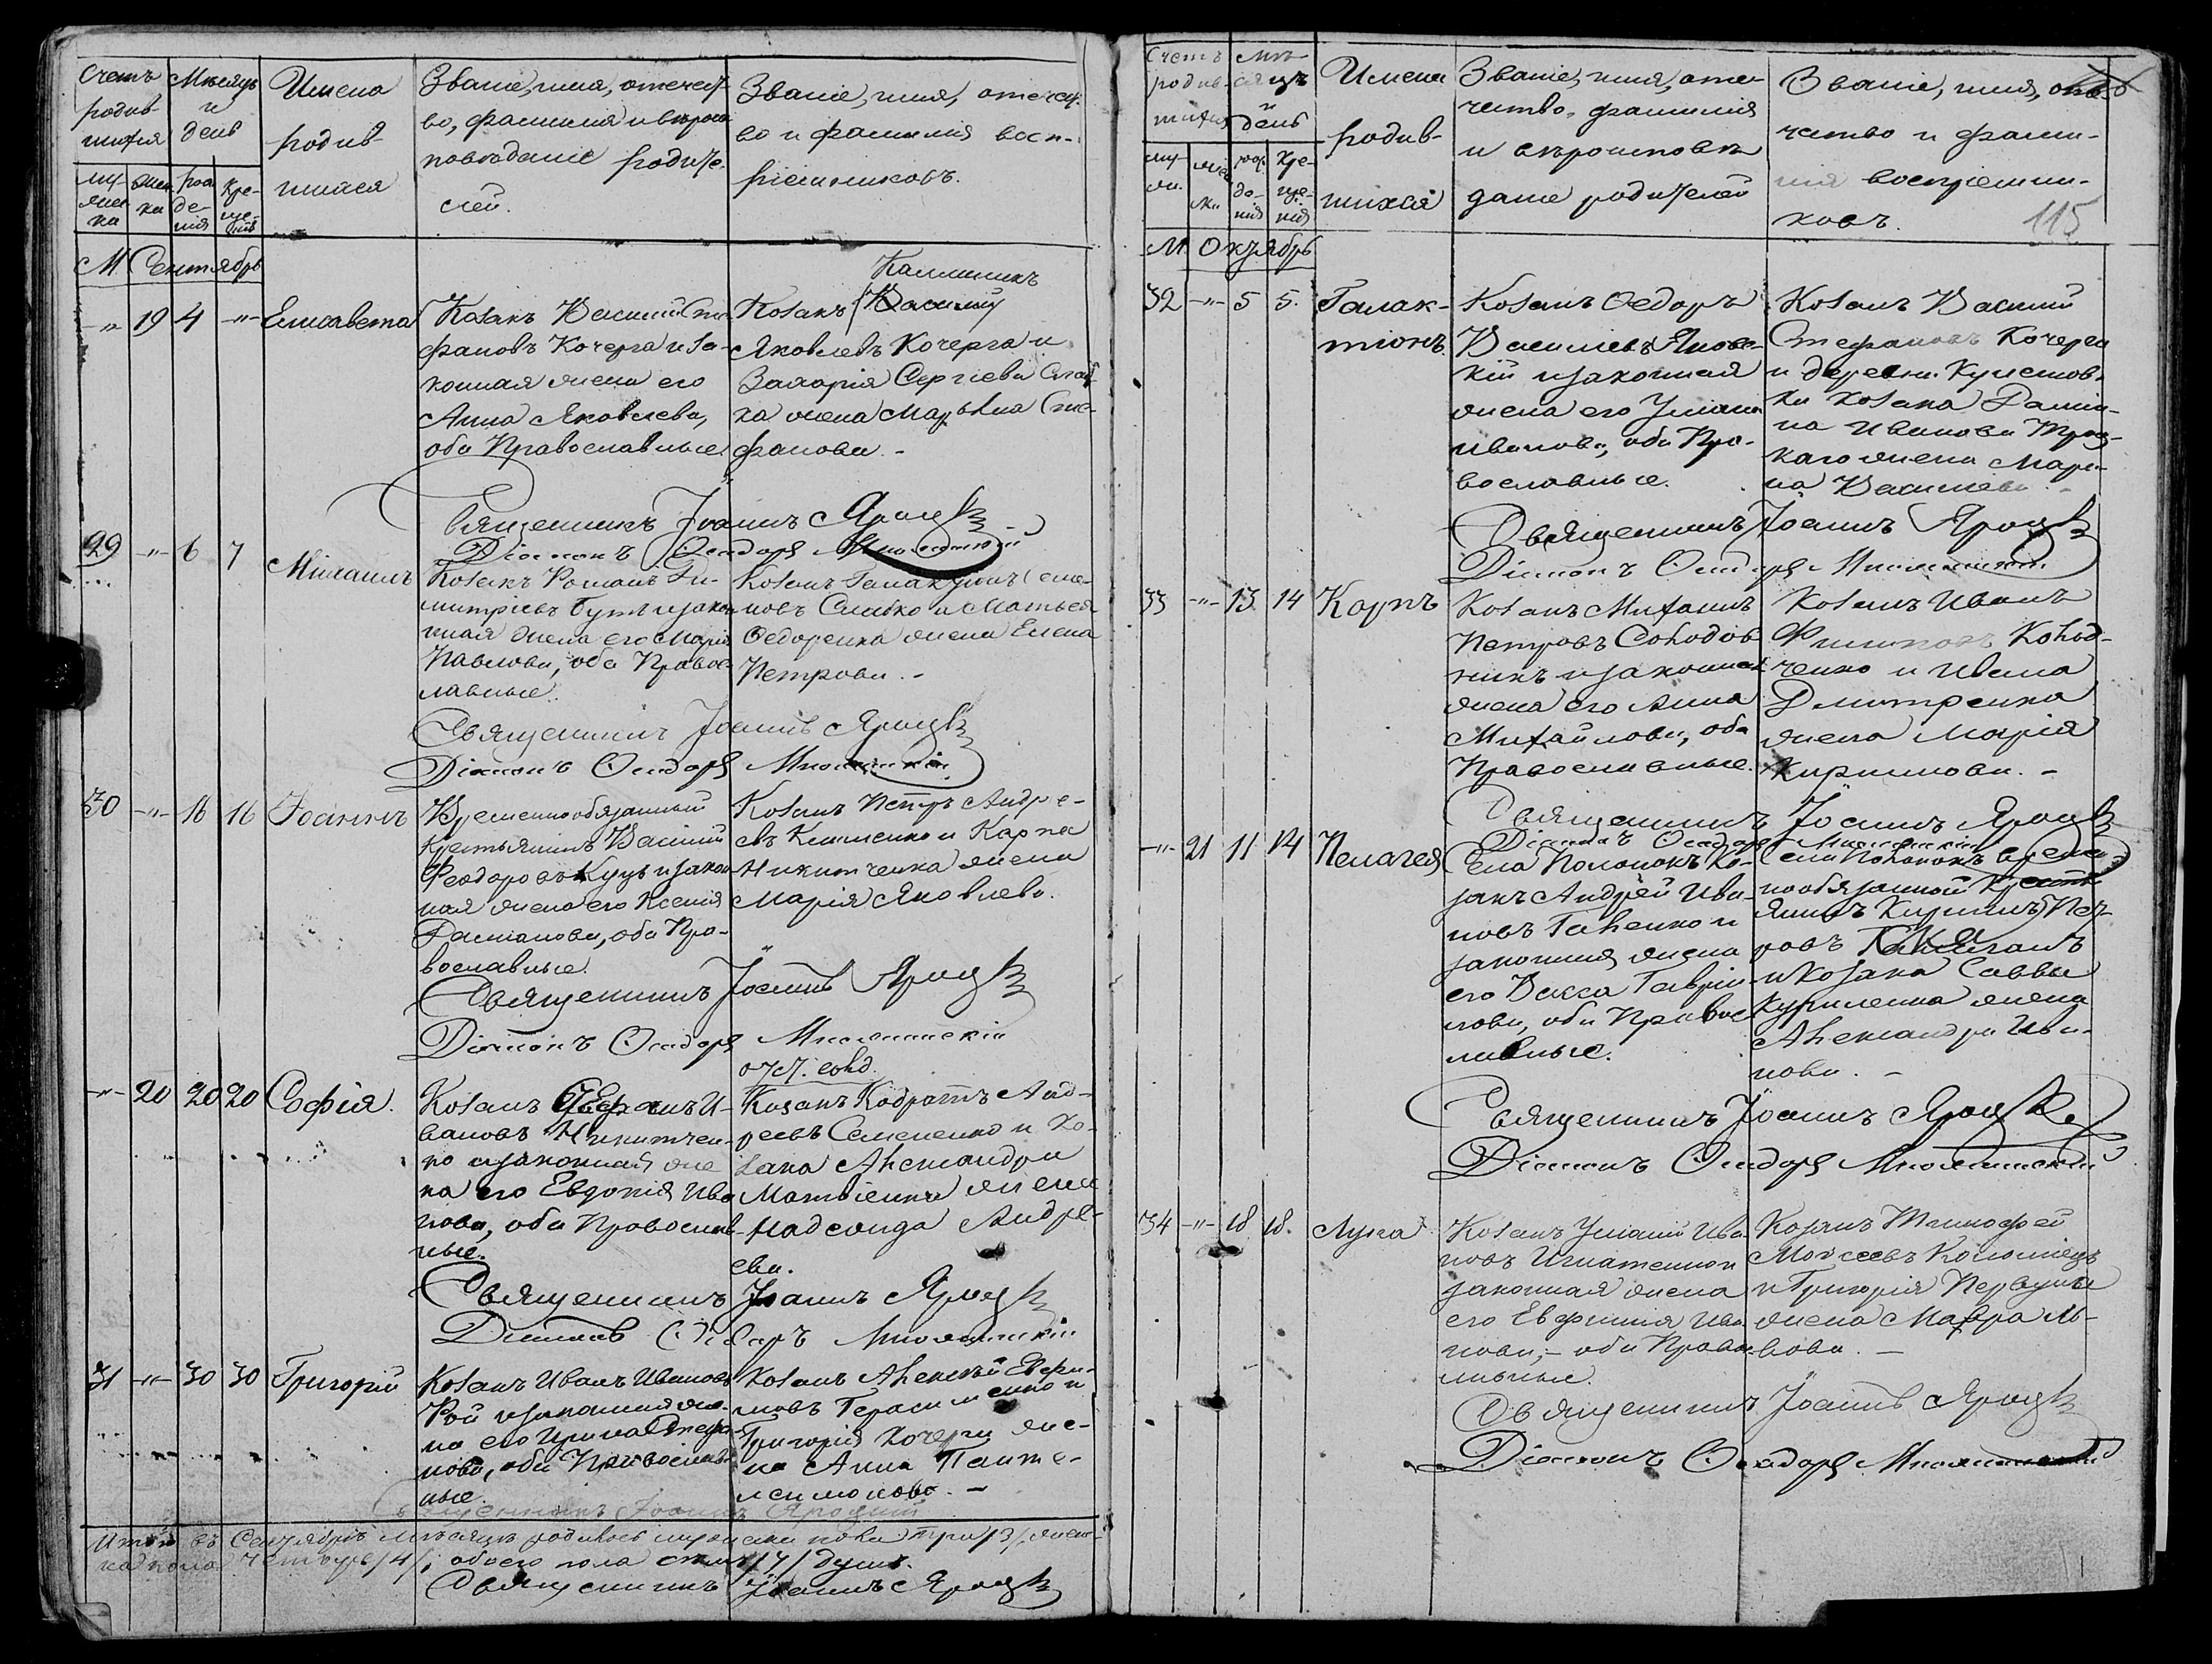 Счетъ родив-шихся
Мѣсяцъ и день
Имена родив-шихся
Званіе, имя, отечест-
во, фамилія и вѣрои-
повѣданіе родите-
лей.
Званіе, имя, отечест-
во и фамилія восп-
ріемниковъ.
муж. женска рожденія крещенія
М. Сентябрь
-"- 19 4 -"- Елисавета
Козакъ Василій Сте-
фановъ Кочерга и за-
конная жена его
Анна Яковлева,
оба Православные.
Калиникъ
Козакъ
Яковлевъ Кочерга и
Захарія Сергіева
жена Марѳа Сте-
фанова.-
Священникъ Іоаннъ Яроцкій
Діаконъ
29 -"- 6 7 Михаилъ
Козакъ Романъ Ди-
митріевъ и закон-
ная жена его Марія
Павлова, оба Правос-
лавные.
Козакъ Галактіонъ Семе-
новъ и Матѳея
Ѳедоренка жена Елена
Петрова.-
Священникъ Іоаннъ Яроцкій
Діаконъ
30 -"- 16 16 Іоаннъ
Временнообязанный
крестьянинъ Василій
Ѳеодоровъ Куцъ и закон-
ная жена его Ксенія
Даміанова, оба Пра-
вославные.
Козакъ Петръ Андре-
евъ Клименко и Карпа
Никитченка жена
Марія Яковлева.
Священникъ Іоаннъ Яроцкій
Діаконъ
-"- 20 20 20 Софія.
Козакъ И-
вановъ Никитчен-
ко и законная же-
на его Евдокія Ива-
нова, оба Православ-
ные.
Козакъ Кодратъ Анд-
реевъ Семененко и Ко-
зака Александра
Матвіенка жена
Андре-
ева.
Священникъ Іоаннъ Яроцкій
Діаконъ
31 -"- 30 30 Григорій
Козакъ Иванъ Ивановъ
Рой и законная же-
на его Ирина Стефа-
нова, оба Православ-
ные.
Козакъ Алексѣй Ефи-
мовъ Герасименко и
Григорія Кочерги же-
на Анна Панте-
леимонова.-
Священникъ Іоаннъ Яроцкій
Итого въ Сентябрѣ мѣсяцѣ родилось мужеска пола три /3/, женс-
ка пола четыре /4/; обоего пола семь /7/ душъ.
Священникъ Іоаннъ Яроцкій
Счетъ родив-шихся
Мѣ-сяцъ и день
Имена родив-шихся
Званіе, имя, оте-
чество, фамилія
и вѣроисповѣ-
даніе родителей
Званіе, имя, оте-
чество и фами-
лія воспріемни-
ковъ.
115
М. Октябрь
32 -"- 5 5. Галак-
тіонъ.
Козакъ Ѳедоръ
Василіевъ Яновс-
кій и законная
жена его Уліана
Иванова, оба Пра-
вославные.
Козакъ Василій
Стефановъ Кочерга
и деревни
козака Дамія-
на Иванова
жена Мари-
на Василіева.-
Священникъ Іоаннъ Яроцкій
Діаконъ
33 -"- 13 14 Карпъ
Козакъ Михаилъ
Петровъ Солодов-
никъ и законная
жена его Анна
Михайлова, оба
Православные.
Козакъ Иванъ
Филиповъ
и Ивана
Дмитренка
жена Марія
Кирилова.-
Священникъ Іоаннъ Яроцкій
Діаконъ
-"- 21 11 14 Пелагея
Села Ко-
закъ Андрей Ива-
новъ Галенко и
законная жена
его Васса Гаврі-
лова, оба Правос-
лавные.
Села времен-
нообязанный крестья-
нинъ Кирилъ Пет-
ровъ
и козака Саввы
Куриленка жена
Александра Ива-
нова.-
Священникъ Іоаннъ Яроцкій
Діаконъ
34 -"- 18 18. Лука
Козакъ Уліанъ Ива-
новъ Игнатенко и
законная жена
его Евфимія Ива-
нова,- оба Правос-
лавные.
Козакъ Тимофей
Моисеевъ Коломіецъ
и Григорія
жена Мавра Ль-
вова.-
Священникъ Іоаннъ Яроцкій
Діаконъ